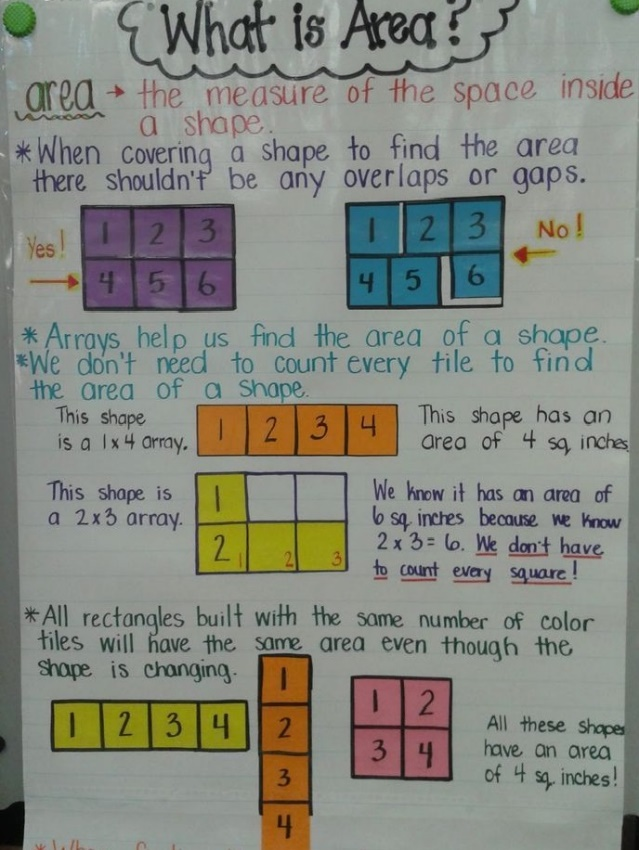 What is Area?
area → the measure of the space inside
a shape.
*When covering a shape to find the area
there shouldn't be any overlaps or gaps.
Yes!
1 2 3
4 5 6
1 2 3
4 5 6
No!
*Arrays help us find the area of a shape.
*We don't need to count every tile to find
the area of a shape.
This shape
is a 1x4 array.
1 2 3 4
This shape has an
area of 4 sq. inches
This shape is
a 2x3 array.
1
2 1 2 3
We know it has an area of
6 sq. inches because we know
2 x 3 = 6. We don't have
to count every square!
*All rectangles built with the same number of color
tiles will have the same area even though the
shape is changing.
1 2 3 4
1
2
3
4
1 2
3 4
All these shapes
have an area
of 4 sq. inches!